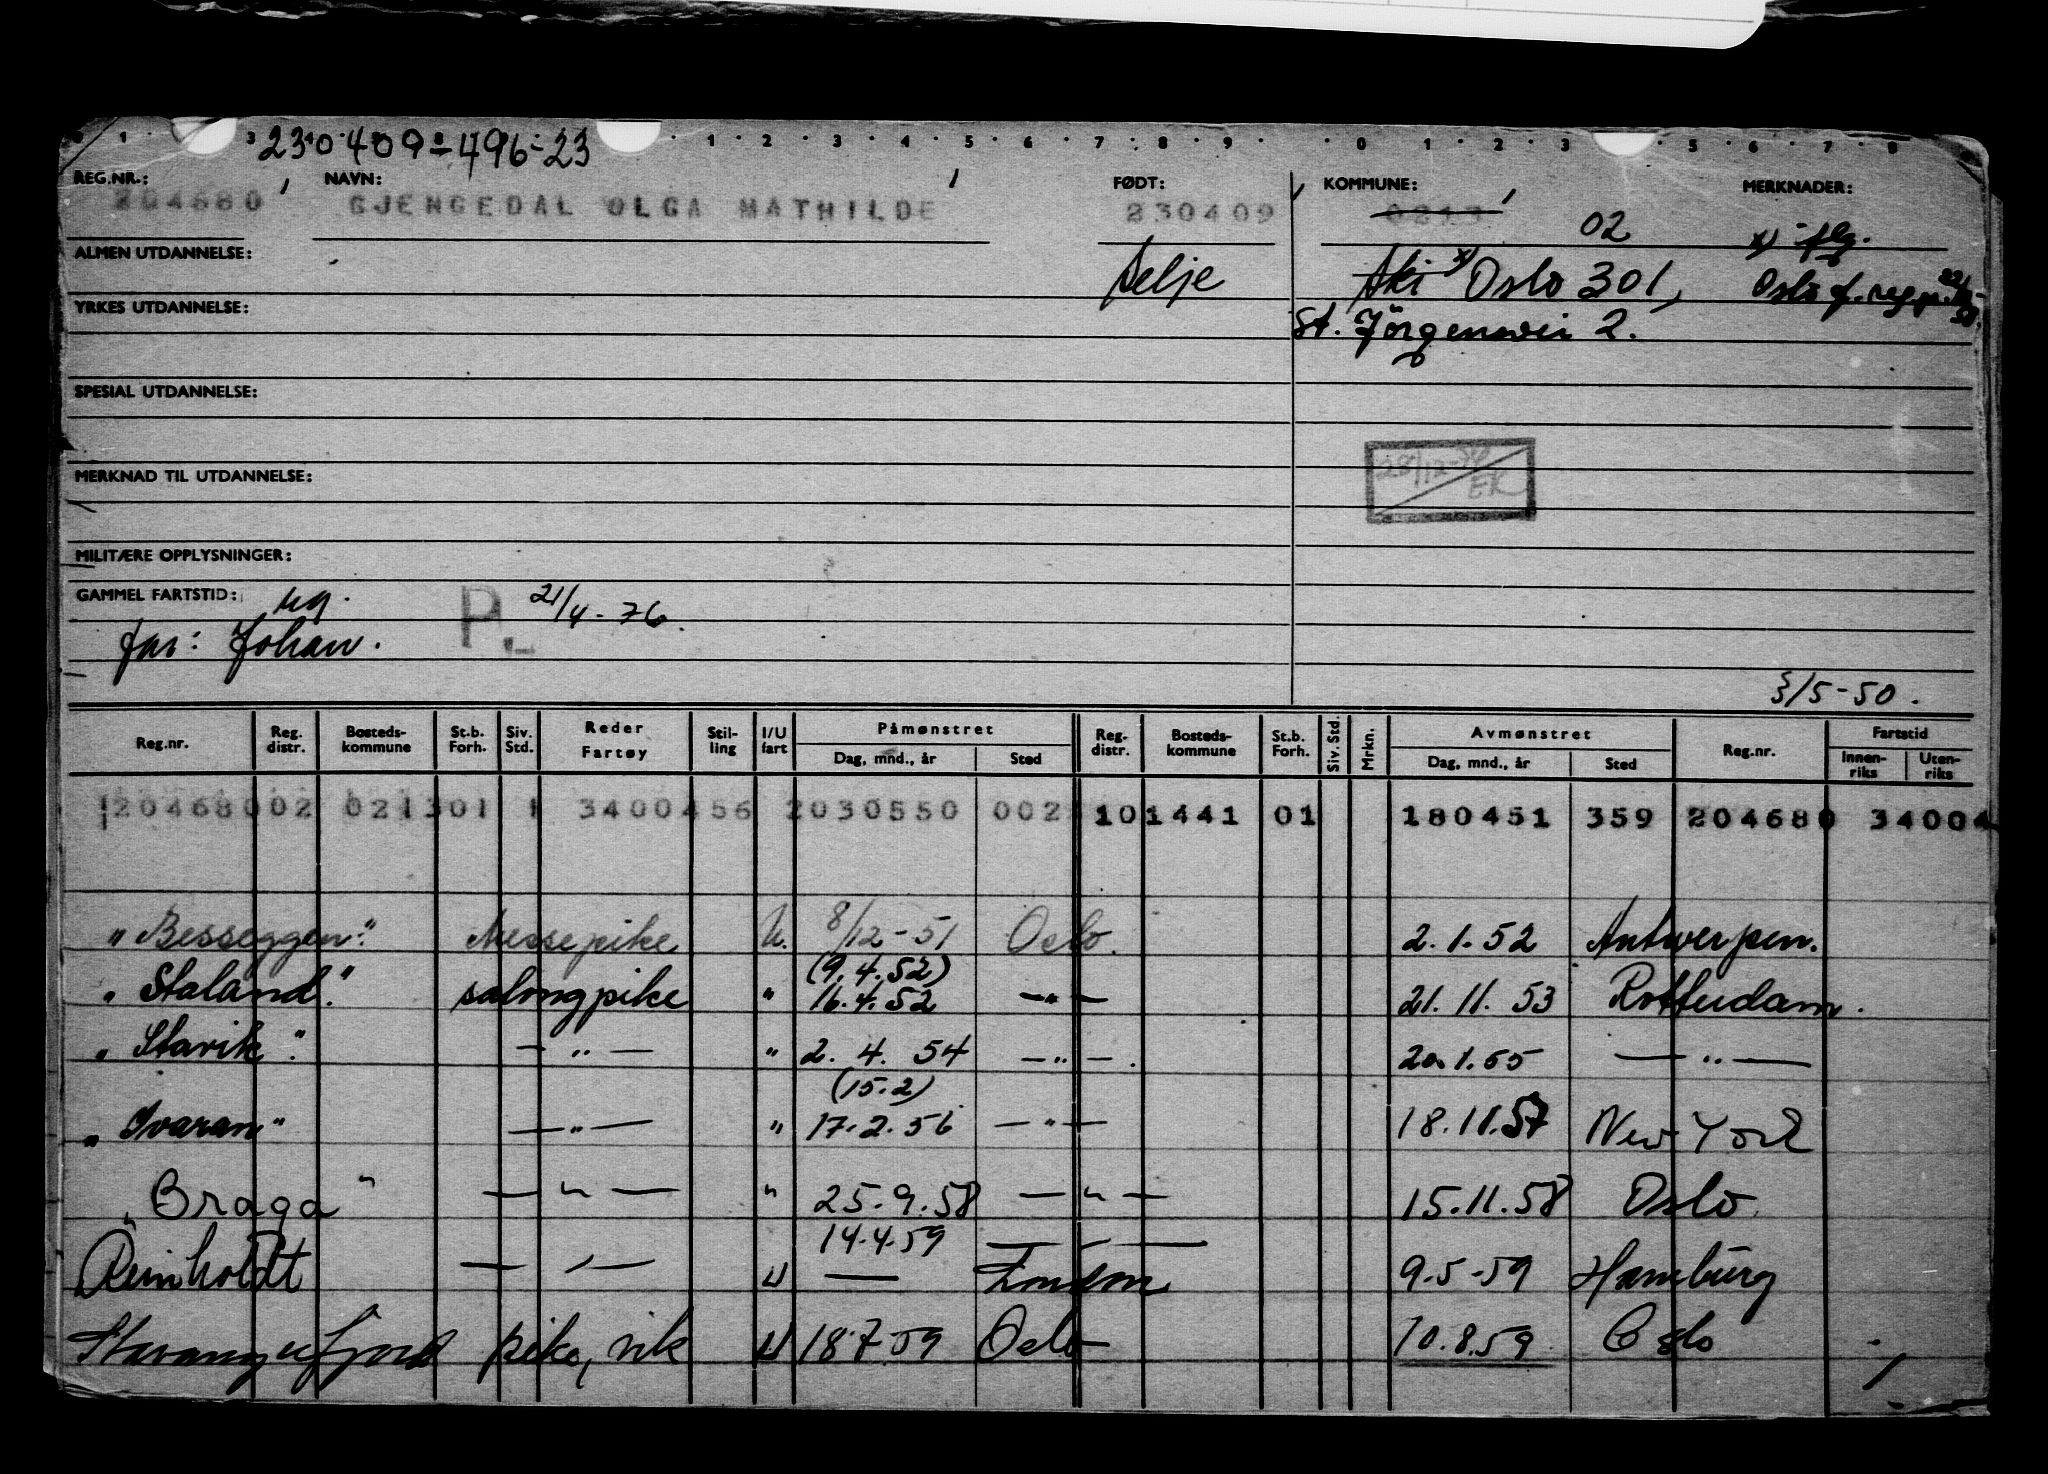 230409-496-23
REG.NR.: NAVN: FØDT: KOMMUNE: MERKNADER:
204680 GJENGEDAL OLGA MATHILDE 230409 0213 02 x) flg.
ALMEN UTDANNELSE: Selje Ski x) Oslo 301, Oslo f.
YRKES UTDANNELSE: St. Jörgensvei 2.
SPESIAL UTDANNELSE:
28/12- EK
MERKNAD TIL UTDANNELSE:
MILITÆRE OPPLYSNINGER:
GAMMEL FARTSTID: ug. P. 21/4-76.
far: Johan.
3/5-50.
Reg.nr. Reg. distr. Bosteds- kommune St.b. Forh. Siv. Std. Reder Fartøy Stil- ling I/U fart Påmønstret Dag, mnd., år Sted Reg- distr. Bosteds- kommune St.b. Forh. Siv. Std. Mrkn. Avmønstret Dag, mnd., år Sted Reg.nr. Fartstid Innen- riks Uten- riks
20468002 021301 1 3400456 2030550 002 101441 01 180451 359 204680 34004
"Besseggen". Messepike U. 8/12-51 Oslo. 2.1.52 Antwerpen.
(9.4.52)
"Staland". salongpike " 16.4.52 —"— 21.11.53 Rotterdam.
"Starik". —"— " 2.4.54 —"—. 20.1.55 —"—
(15.2)
"Ivaran" —"— " 17.2.56 —"— 18.11.57 New York
"Braga" —"— " 25.9.58 —"— 15.11.58 Oslo
14.4.59 —"—
Reinholdt —"— U — London 9.5.59 Hamburg
Stavangerfjord pike, vik U 18.7.59 Oslo 10.8.59 Oslo